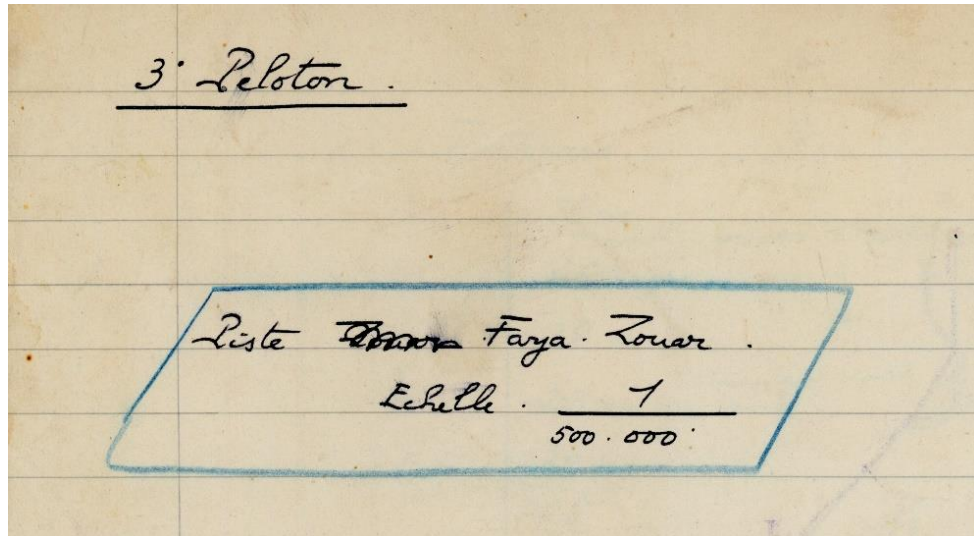 3e Peloton.
Piste Faya. Zouar.
Echelle. 1
500.000e